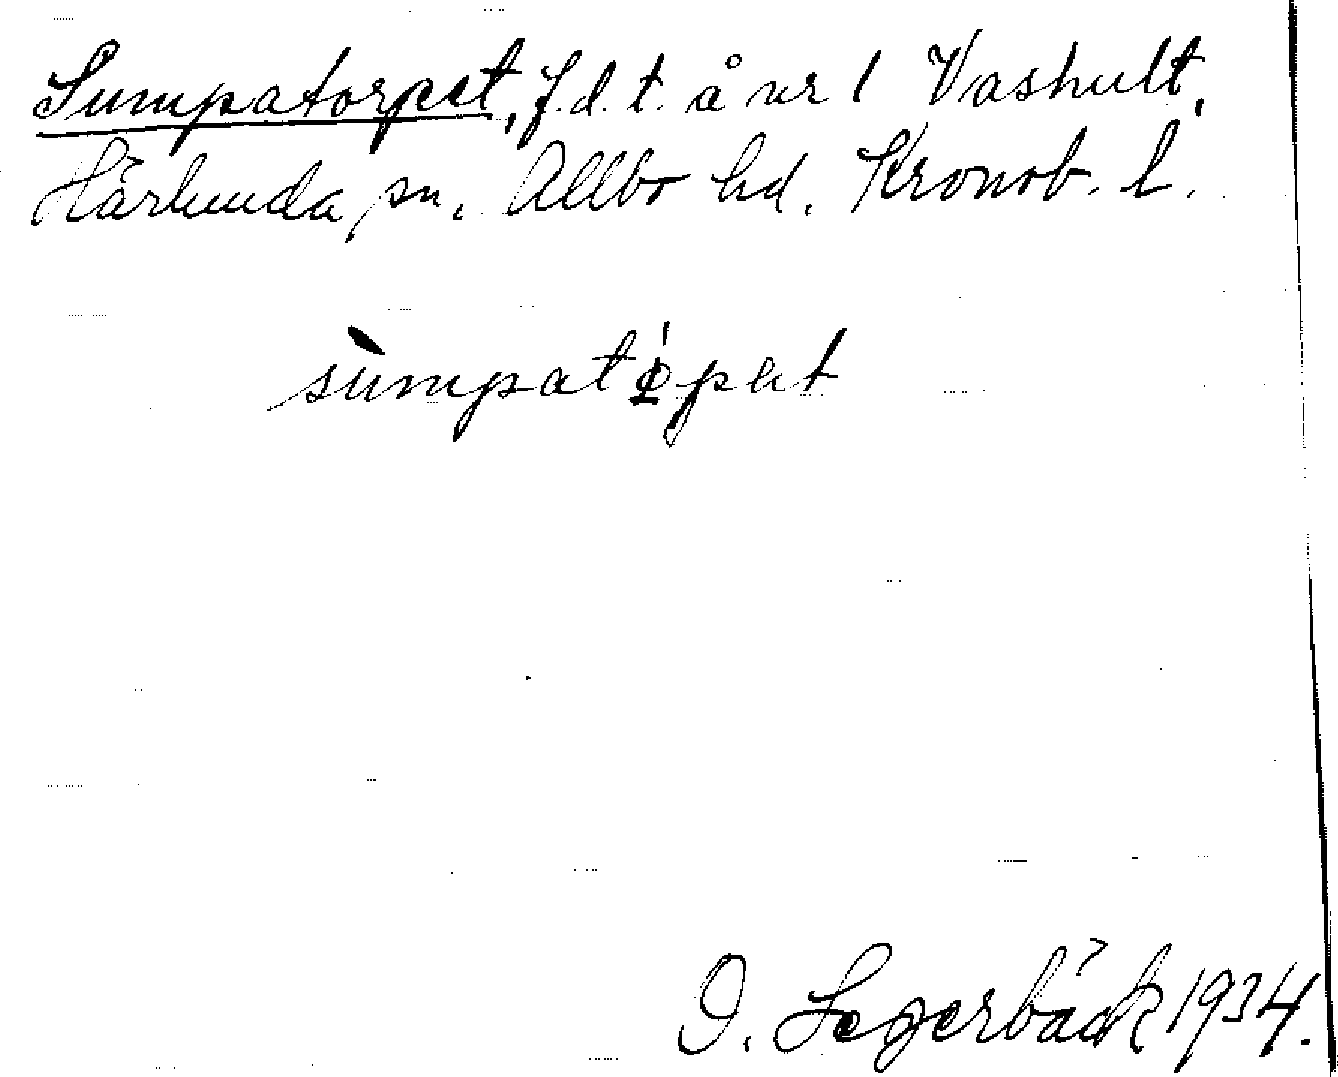 Sumpatorpet, f.d. t. å nr 1 Vashult,
Härlunda sn, Allbo hd. Kronob. l.
sùmpatǿpet
I. Segerbäck 1934.